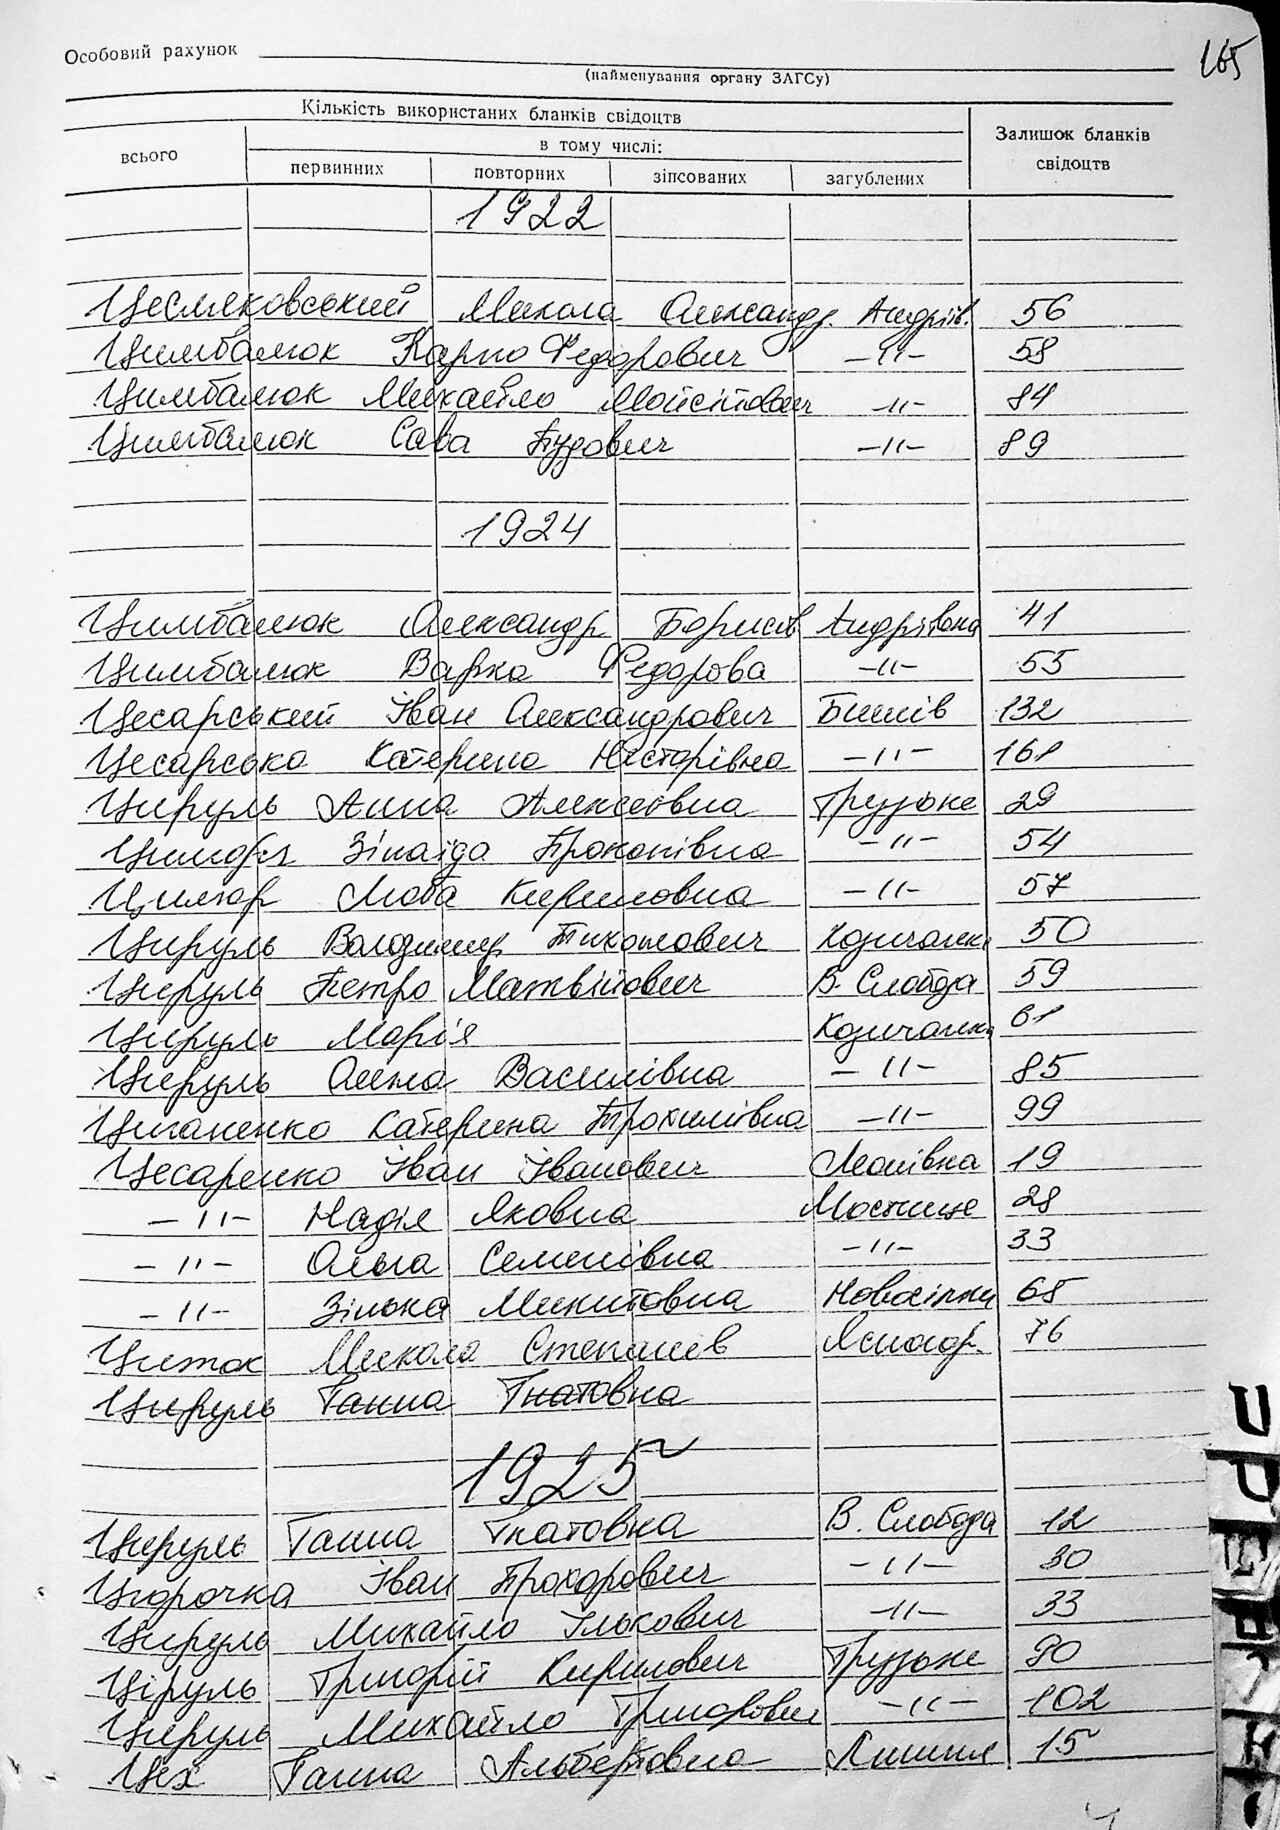 165
Особовий рахунок
(найменування органу ЗАГСу)
Кількість використаних бланків свідоцтв
Залишок бланків свідоцтв
всього
в том числі:
первинних повторних зіпсованих загублених
1922
Цесляковський Микола Олександр. Андріїв. 56
Цимбалюк Карпо Федорович -"- 58
Цимбалюк Михайло Мойсійович -"- 84
Цимбалюк Сава Пудович -"- 89
1924
Цимбалюк Олександр Борисів Андріївка 41
Цимбалюк Варка Федорова -"- 55
Цесарський Іван Олександрович Бишів 132
Цесарська Катерина Несторівна -"- 161
Цируль Анна Алексеовна Грузьке 29
Зінаїда Прокопівна -"- 54
Люба Кириловна -"- 57
Цируль Володимир Тихонович 50
Цируль Петро Матвійович В. Слобода 59
Цируль Марія 61
Цируль Олена Василівна -"- 85
Циганенко Катерина Трохимівна -"- 99
Цесаренко Іван Іванович 19
-"- Надія Яковна Мостище 28
-"- Ольга Семенівна -"- 33
-"- Зінька Микитовна Новосілки 68
Микола Степанів Ясногор. 76
Цируль Ганна Гнатовна
1925
Цируль Ганна Гнатовна В. Слобода 12
Цюрочка Іван Прохорович -"- 30
Цируль Михайло Ількович -"- 33
Ціруль Григорій Кирилович Грузьке 90
Цируль Михайло Григорович -"- 102
Цех Ганна Альбертовна 15